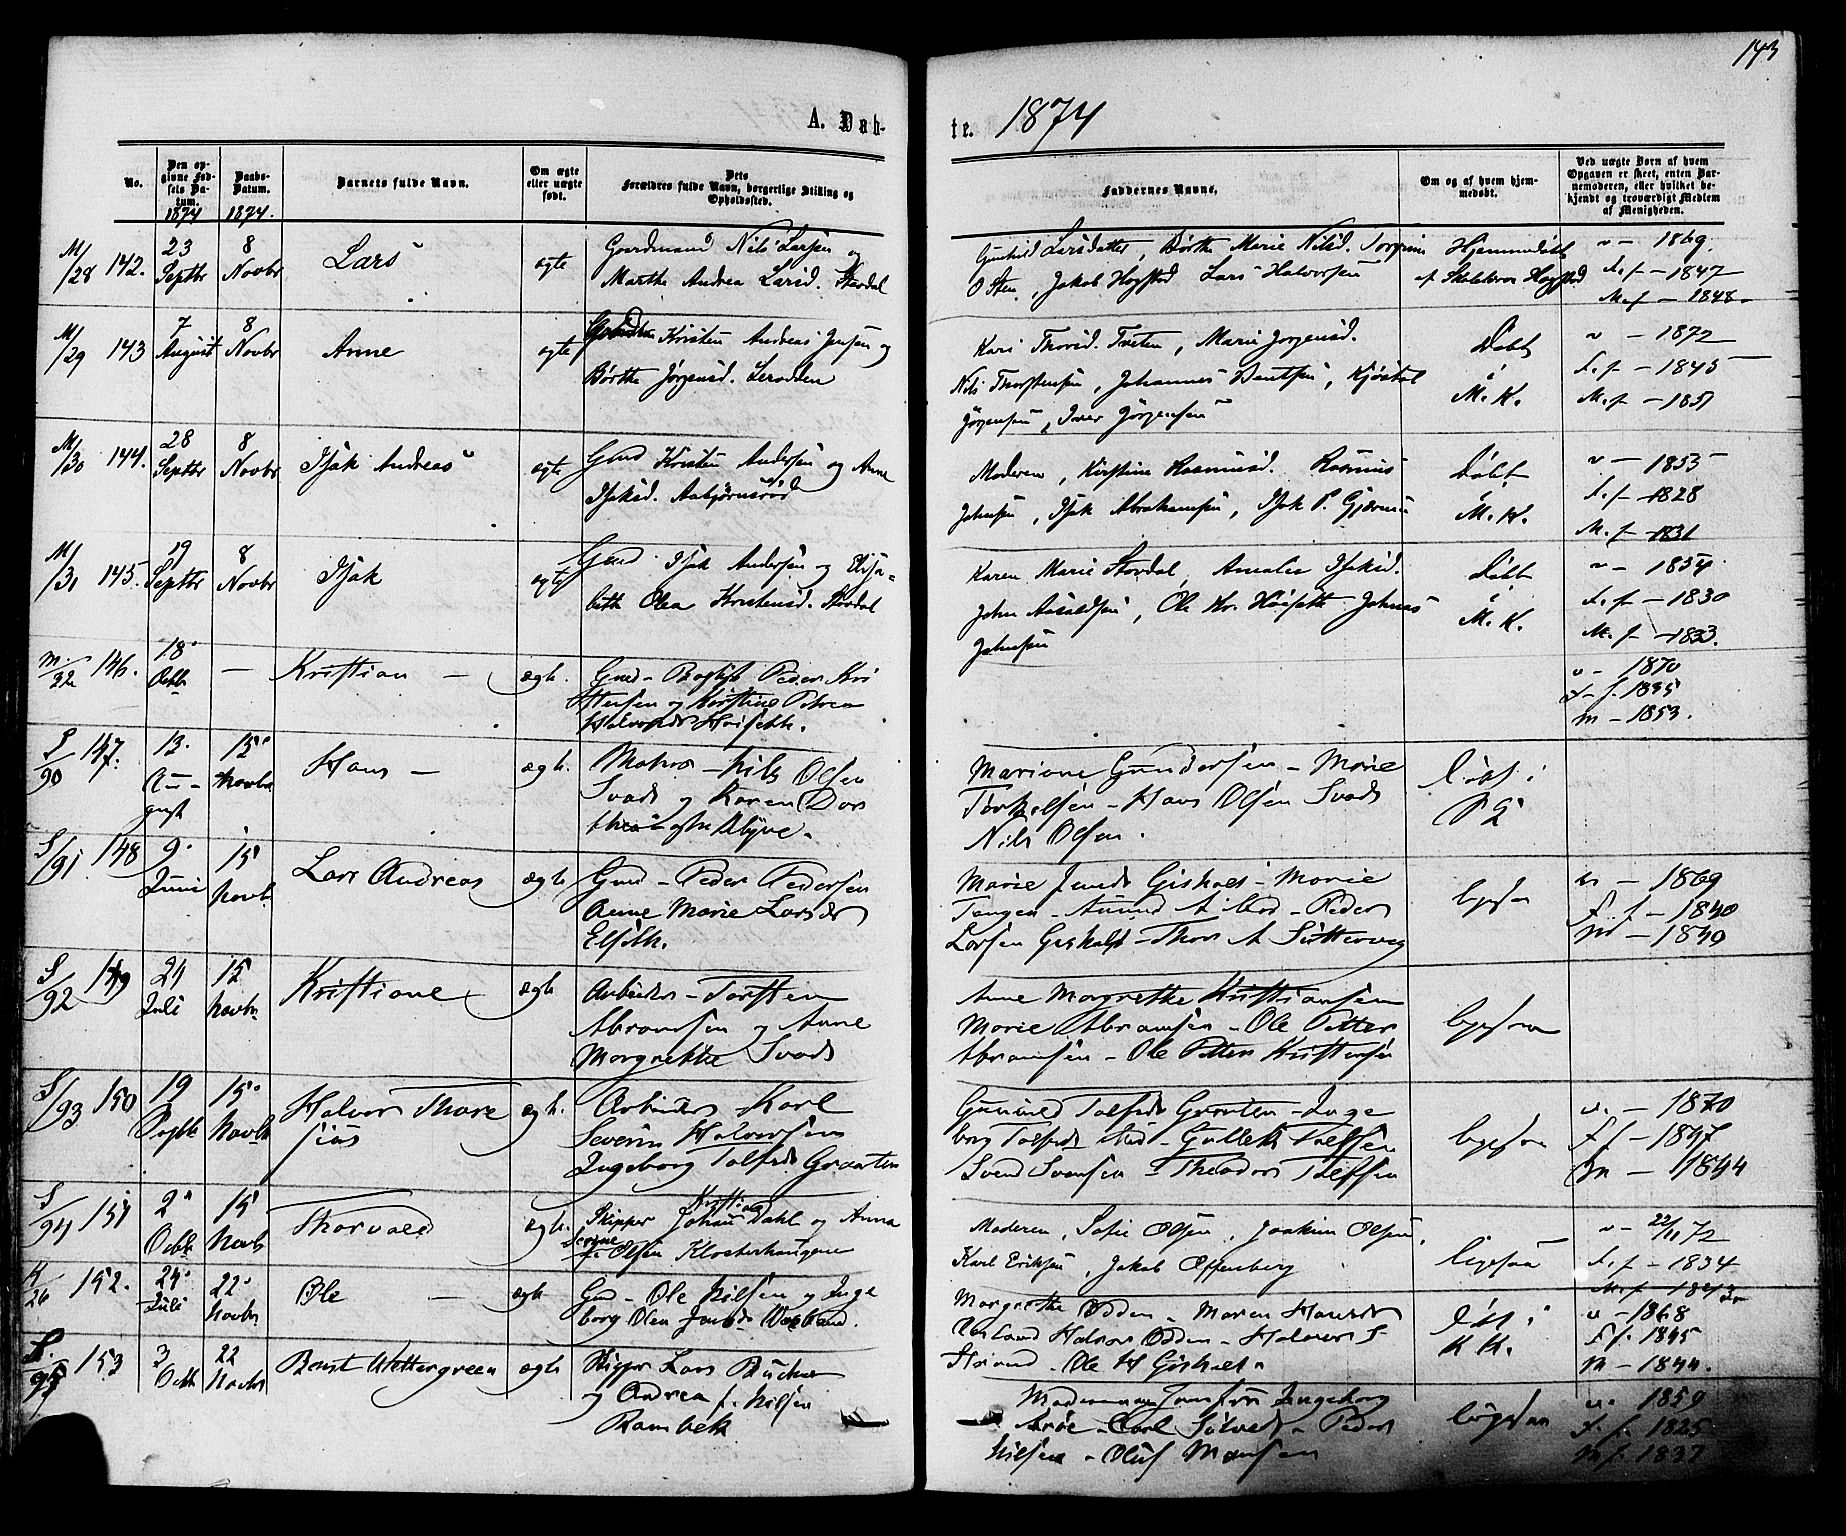 143
A. Døb-
te. 1874
No.
Den opgivne Fødsels Datum. 1874
Daabs-Datum. 1874.
Barnets fulde Navn.
Om ægte eller uægte født.
Dets Forældres fulde Navn, borgerlige Stilling og Opholdssted.
Faddernes Navne.
Om og af hvem hjemmedøbt.
Ved uægte Børn af hvem Opgaven er skeet, enten Barnemoderen, eller hvilket bekjendt og troværdigt Medlem af Menigheden.
M/28 142. 23 Septbr 8 Novbr Lars ægte
Gaardmand Nils Larsen og
Marthe Andrea Larsd. Stordal
Gunhild Larsdatter, Børthe Marie Nilsd. Torgrim
O Sten, Jakob Hogstad Lars Halvorsen
Hjemmedøbt
af Skolelærer Hogstad
v - 1869.
F. f - 1847
M. f - 1848
M/29 143 7 August 8 Novbr Anne ægte
Kristen Andreas Jensen og
Børthe Jørgensd.
Kari Thorsd. Tveten, Marie Jørgensd.
Nils Thorstensen, Johannes Bentsen, Kjøstol
Jørgensen, Iver Jørgensen
Døbt
i
M. K.
v - 1872
F. f - 1845
M. f - 1851
M/30 144. 28 Septbr 8 Novbr Isak Andreas ægte
Gmd Kristen Andersen og Anne
Isaksd. Aabjørnsrød
Moderen, Kirstine Rasmusd. Rasmus
Johnsen, Isak Abrahamsen, Isak P.
Døbt
i
M. K.
v - 1855
F. f - 1828
M. f - 1831
M/31 145. 19 Septbr 8 Novbr Isak ægte
Gmd Isak Andersen og Elisa-
beth Olea Kristensd. Stordal
Karen Marie Stordal, Amalia Isaksd.
John Aasoldsen, Ole Kr. Høiseth Johnas
Johnsen
Døbt
i
M. K.
v - 1854.
F. f - 1830
M. f - 1833.
M./32 146. 18. Octb. - Kristian - ægte.
Gmd - Peder Kri
stensen og Kirstine Petrea
Halvorsdr Høiseth.
v - 1870
F. f. 1835
M - 1853.
S/90 147. 13. August 15. Novbr Hans - ægte.
Matros - Nils Olsen
Svads og Karen Dor
thea
Mariane Gundersen - Marie
Torkelsen - Hans Olsen Svads
Nils Olsen.
Døbt i
S/91 148 9. Juni 15 Novb. Lars Andreas ægte
Gmd - Peder Pedersen
Anne Marie Larsdr
Marie Jensdr Gisholt - Marie
Tangen - Peder
Larsen Gisholt - Thor A
ligesaa
v - 1869
F. f - 1840
M - 1840
S/92 149 24 Juli 15 Novbr Kristiane ægte
Arbeider - Torsten
Abramsen og Anne
Morgrethe Svads
Anne Morgrethe Kristiansen
Marie Abramsen - Ole Petter
Abramsen - Ole Petter Kristensen
ligesaa
S/93 150 19 Septb 15. Novb Halvor Thore
sius ægte.
Arbeider - Karl
Severin Halvorsen
Ingeborg Tolfsdr Graaten
Gunnild Tolfsdr Graaten - Inge
borg Tolfsdr - Gullek Tolfsen
Svend Svensen - Theodor Tolfsen
ligesaa
v. - 1870
F. f - 1847
M - 1844
S/94 151 2 Octb. 15 Novb Thorvald ægte.
Kristian
Skipper Johan Dahl og Anna
f. Olsen Klosterhaugene
Moderen, Sofie Olsen, Joakim Olsen,
Karl Eriksen, Jakob Offenberg
ligesaa
v - 22/11 72
F. f - 1834
M. f - 1843
K/26 152. 24. Juli 22. Novbr Ole - ægte
Gmd - Ole Nilsen og Inge
borg Olea Jensdr
Morgrethe Odden - Maren
Halvor Odden - Halvor S
- Ole H Gisholt.
Døbt i
K K.
v - 1868
F f. 1845
M - 1844.
S/95 153 3 Octb 22 Novbr Bernt Wettergreen ægte.
Skipper Lars
og Andrea f. Nilsen
Rambek
Ingeborg
Arøe - Carl - Peder
Nilsen - Oluf Monsen
ligesaa
v. - 1859
F. f. - 1825
M f. 1837